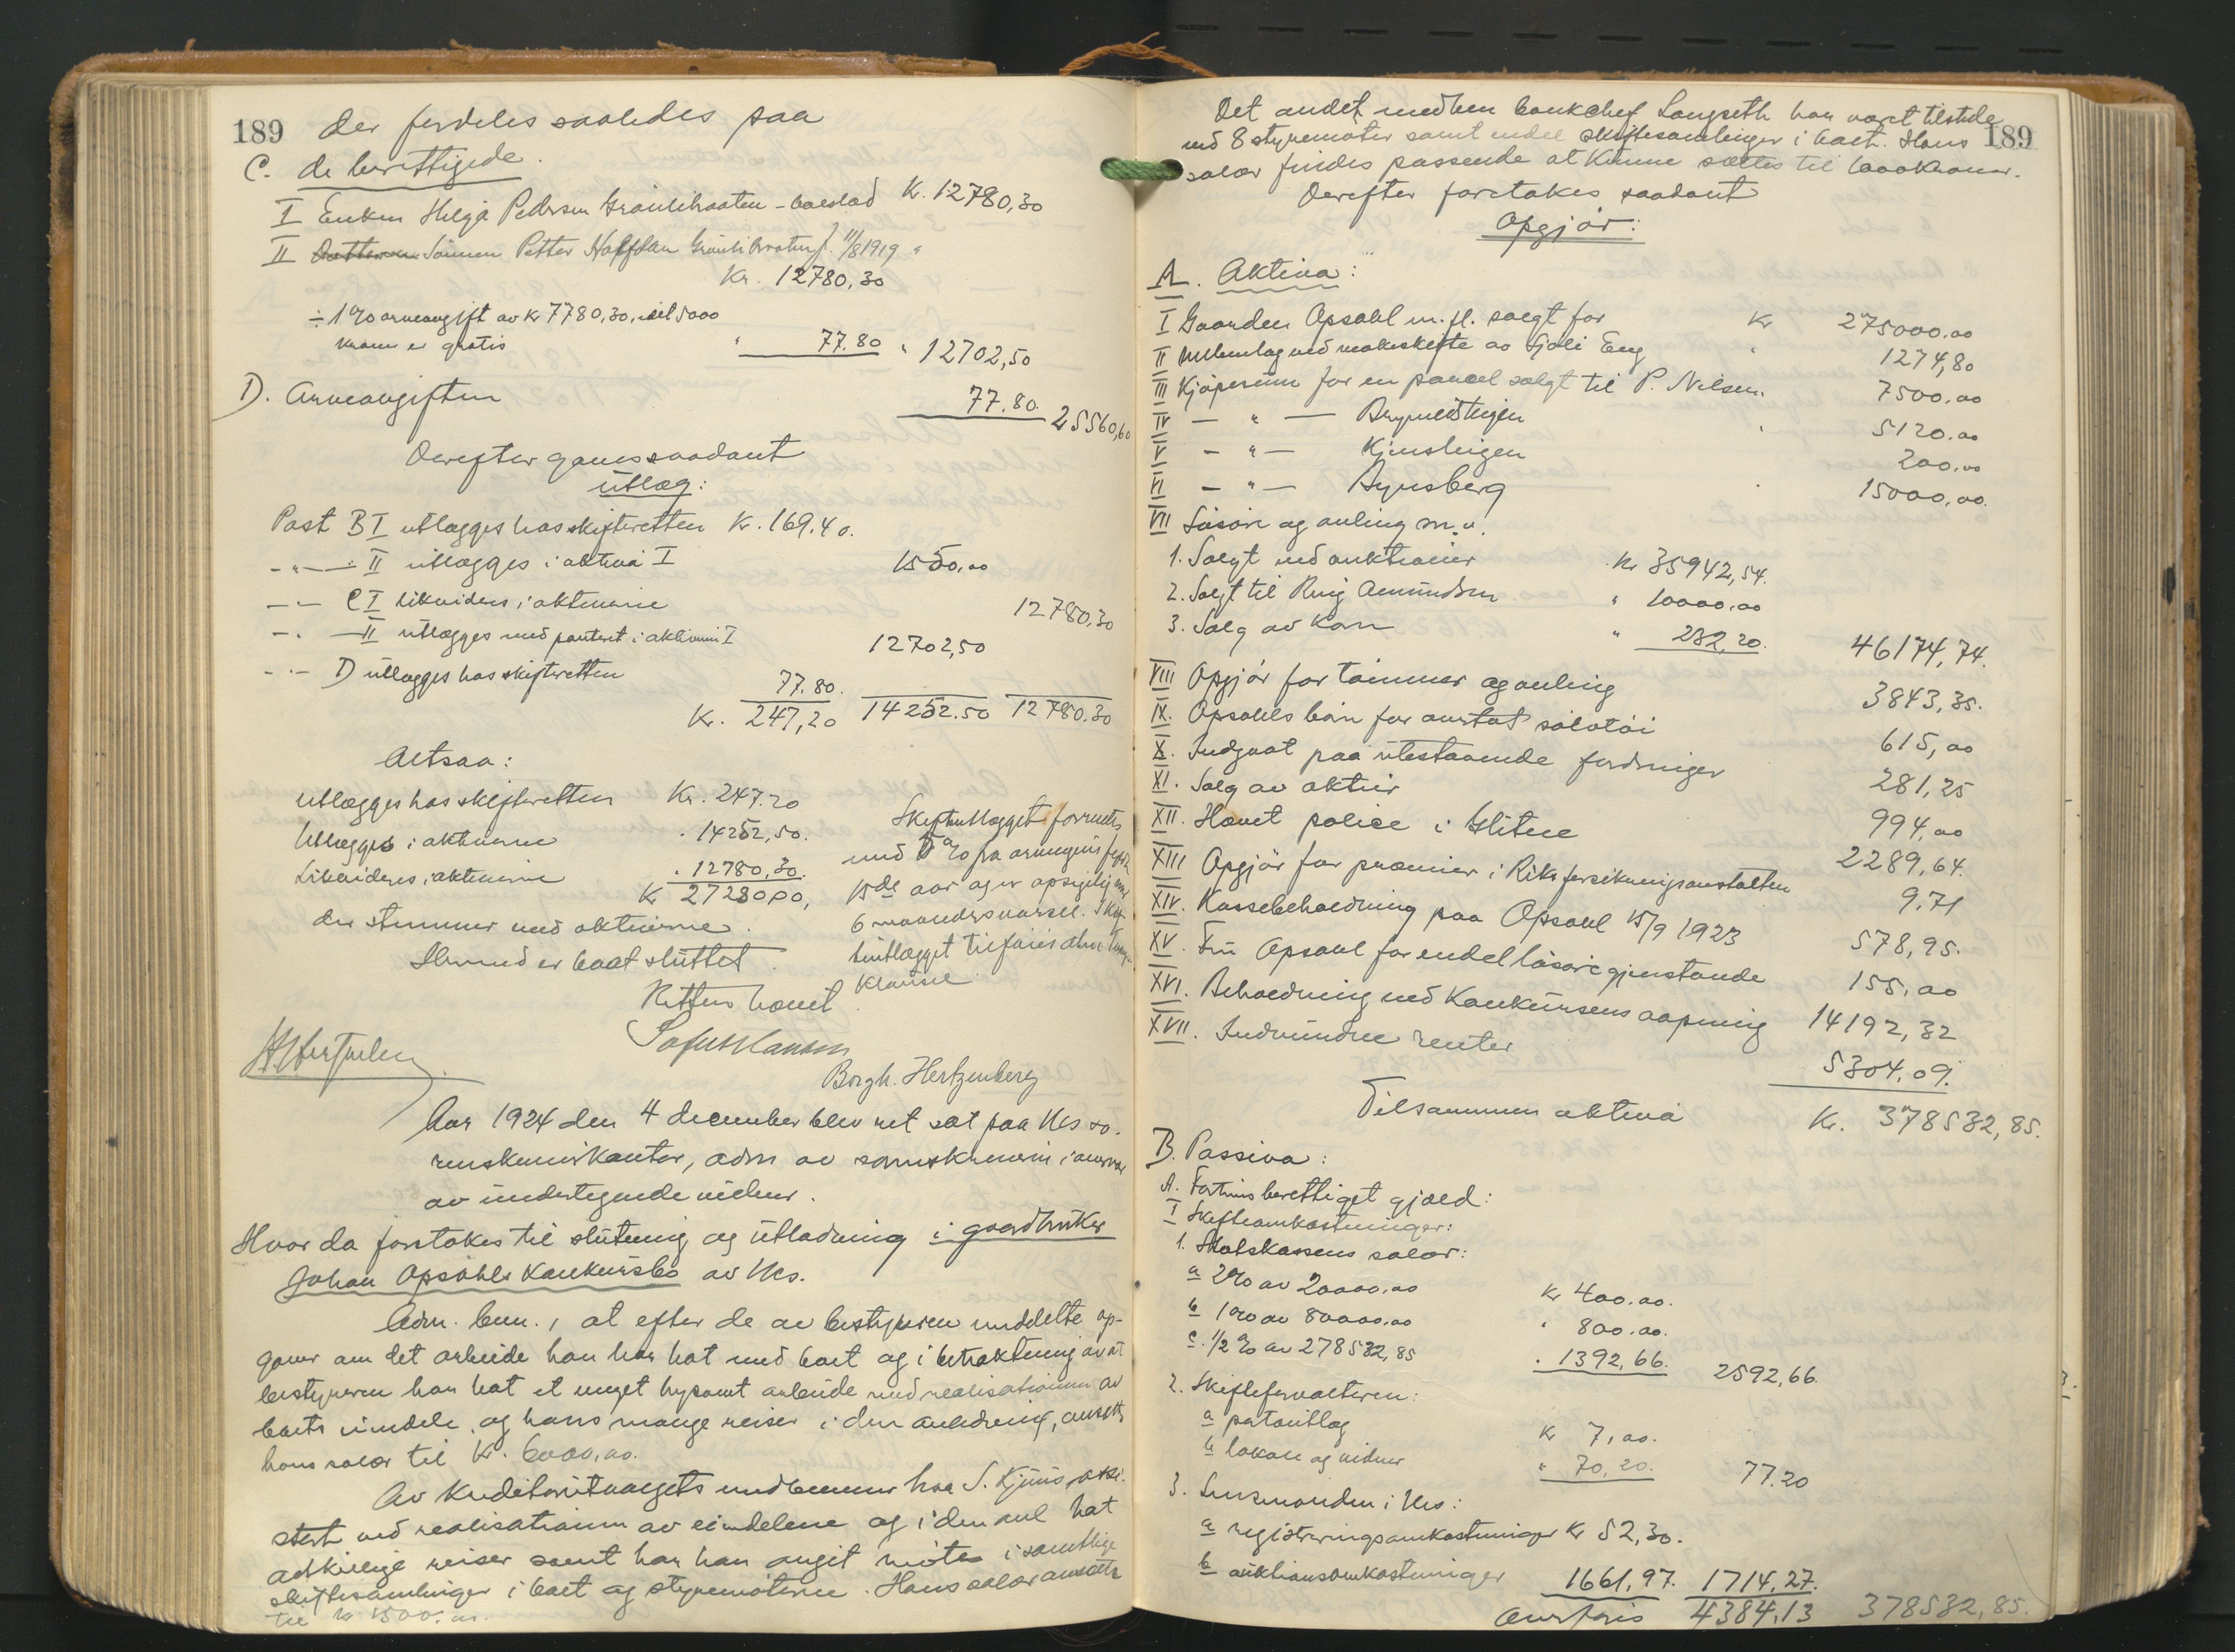 189 der fordeles saaledes paa
C. de berettigede.
I Enken Helga Pedersen Graulibraaten - boeslod Kr. 12780,30
II Datteren Sønnen Petter Graulibraaten f. 11/8 1919 "
Kr. 12780,30
÷ 1% arveavgift av Kr 7780,30, idet 5000
kroner er gratis " 77.80 " 12702,50
D. Arveavgiften 77.80 25560,60
Derefter gaves saadant
Utlæg:
Post B I utlægges hos skifteretten Kr. 169.40.
- " - II utlægges i aktiva I 1550,00
- " - C I likvideres i aktiverne 12780,30
- " - II utlægges med panteret i aktivum I 12702,50
- " - D utlægges hos skifteretten 77.80.
Kr. 247,20 14252.50 12780.30
Altsaa:
Utlægges hos skifteretten Kr. 247.20
Utlægges i aktiverne " 14252,50.
Likvideres i aktiverne " 12780,30.
Kr 27280,00,
der stemmer med aktiverne.
Hermed er boet sluttet.
Skifteutlægget forrentes
med 5% fra arvingens fyldte
15de aar og er opsigelig med
6 maaneders varsel. Skif-
teutlægget tilføies
klausul
Retten hævet.
Borgh. Hertzenberg
Aar 1924 den 4 december blev ret sat paa Nes so-
renskriverkontor, adm av sorenskriveren i nærvær
av undertegnede vidner.
Hvor da foretokes til slutning og utlodning i gaardbruker
Johan Opsahls konkursbo av Nes.
Adm. bem., at efter de av bestyreren meddelte op-
gaver om det arbeide han har hat med boet og i betraktning av at
bestyreren har hat et meget brysomt arbeide med realisationen av
boets eiendele, og hans mange reiser i den anledning, ansættes
hans salær til Kr. 6000,00.
Av kreditorutvalgets medlemmer har S. Kjuus assi-
stert ved realisationen av eiendelene og i den anl hat
adskillige reiser samt har han avgit møte i samtlige
skiftesamlinger i boet og styremøterne. Hans salær ansættes
til kr 1500.00.
Det andet medlem bankchef Langseth har været tilstede
ved 8 styremøter samt endel skiftesamlinger i boet. Hans 189
salær findes passende at kunne sættes til 600 kroner.
Derefter foretokes saadant
Opgjør:
A. Aktiva:
I Gaarden Opsahl m. fl. solgt for Kr 275000.00
II Mellemlag ved makeskifte av Eng " 1274,80
III Kjøpesum for en parcel solgt til P. Nilsen. 7500.00
IV - " - 5120.00
V - " - 200.00
VI - " - 15000,00.
VII Løsøre og avling m.v.
1. Solgt ved auktioner Kr 35942,54.
2. Solgt til Amundsen " 10000.00
3. Salg av korn " 232,20. 46174,74.
VIII Opgjør for tømmer og avling 3843,35.
IX. Opsahls bon for sølvtøi 615,00
X. Indgaat paa utestaaende fordringer 281,25
XI. Salg av aktier 994,00
XII. Hævet police i Glitne 2289,64.
XIII Opgjør for præmier i Riksforsikringsanstalten 9.71
XIV. Kassebeholdning paa Opsahl 15/9 1923 578,95.
XV. Fru Opsahl for endel løsøregjenstande 155,00
XVI. Beholdning ved konkursens aapning 14192,32
XVII. Indvundne renter 5304.09.
Tilsammen aktiva Kr. 378532,85.
B. Passiva:
A. Fortrinsberettiget gjæld:
I Skifteomkostninger:
1. Statskassens salær:
a 2% av 20000.00 Kr 400.00.
b 1% av 80000.00 " 800.00.
c 1/2% av 278532,85 " 1392,66. 2592,66.
2. Skifteforvalteren:
a portoutlæg Kr 7,00.
b lokale og vidner " 70,20. 77.20
3. Lensmanden i Nes:
a registreringsomkostninger Kr 52,30.
b auktionsomkostninger 1661,97. 1714,27.
Overføres 4384,13 378532,85.